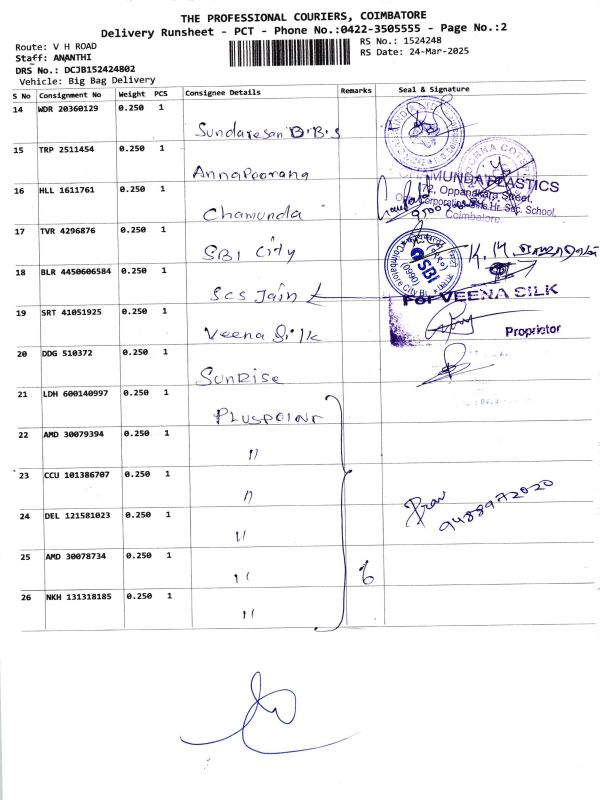 THE PROFESSIONAL COURIERS, COIMBATORE
Delivery Runsheet - PCT - Phone No.:0422-3505555 - Page No.:2
Route: V H ROAD
RS No.: 1524248
Staff: ANANTHI
RS Date: 24-Mar-2025
DRS No.: DCJB152424802
Vehicle: Big Bag Delivery
S No Consignment No Weight PCS Consignee Details Remarks Seal & Signature
14 WDR 20360129 0.250 1 Sundaresan B.B.S
15 TRP 2511454 0.250 1 Annapoorana
16 HLL 1611761 0.250 1 Chamunda
CHAMUNDA PLASTICS
72, Oppanakara Street,
Coimbatore.
17 TVR 4296876 0.250 1 SBI City
SBI
18 BLR 4450606584 0.250 1 SCS Jain
19 SRT 41051925 0.250 1 Veena Silk
For VEENA SILK
Proprietor
20 DDG 510372 0.250 1 Sunrise
21 LDH 600140997 0.250 1 Pluspoint
22 AMD 30079394 0.250 1 "
23 CCU 101386707 0.250 1 "
9488972020
24 DEL 121581023 0.250 1 "
25 AMD 30078734 0.250 1 " 6
26 NKH 131318185 0.250 1 "